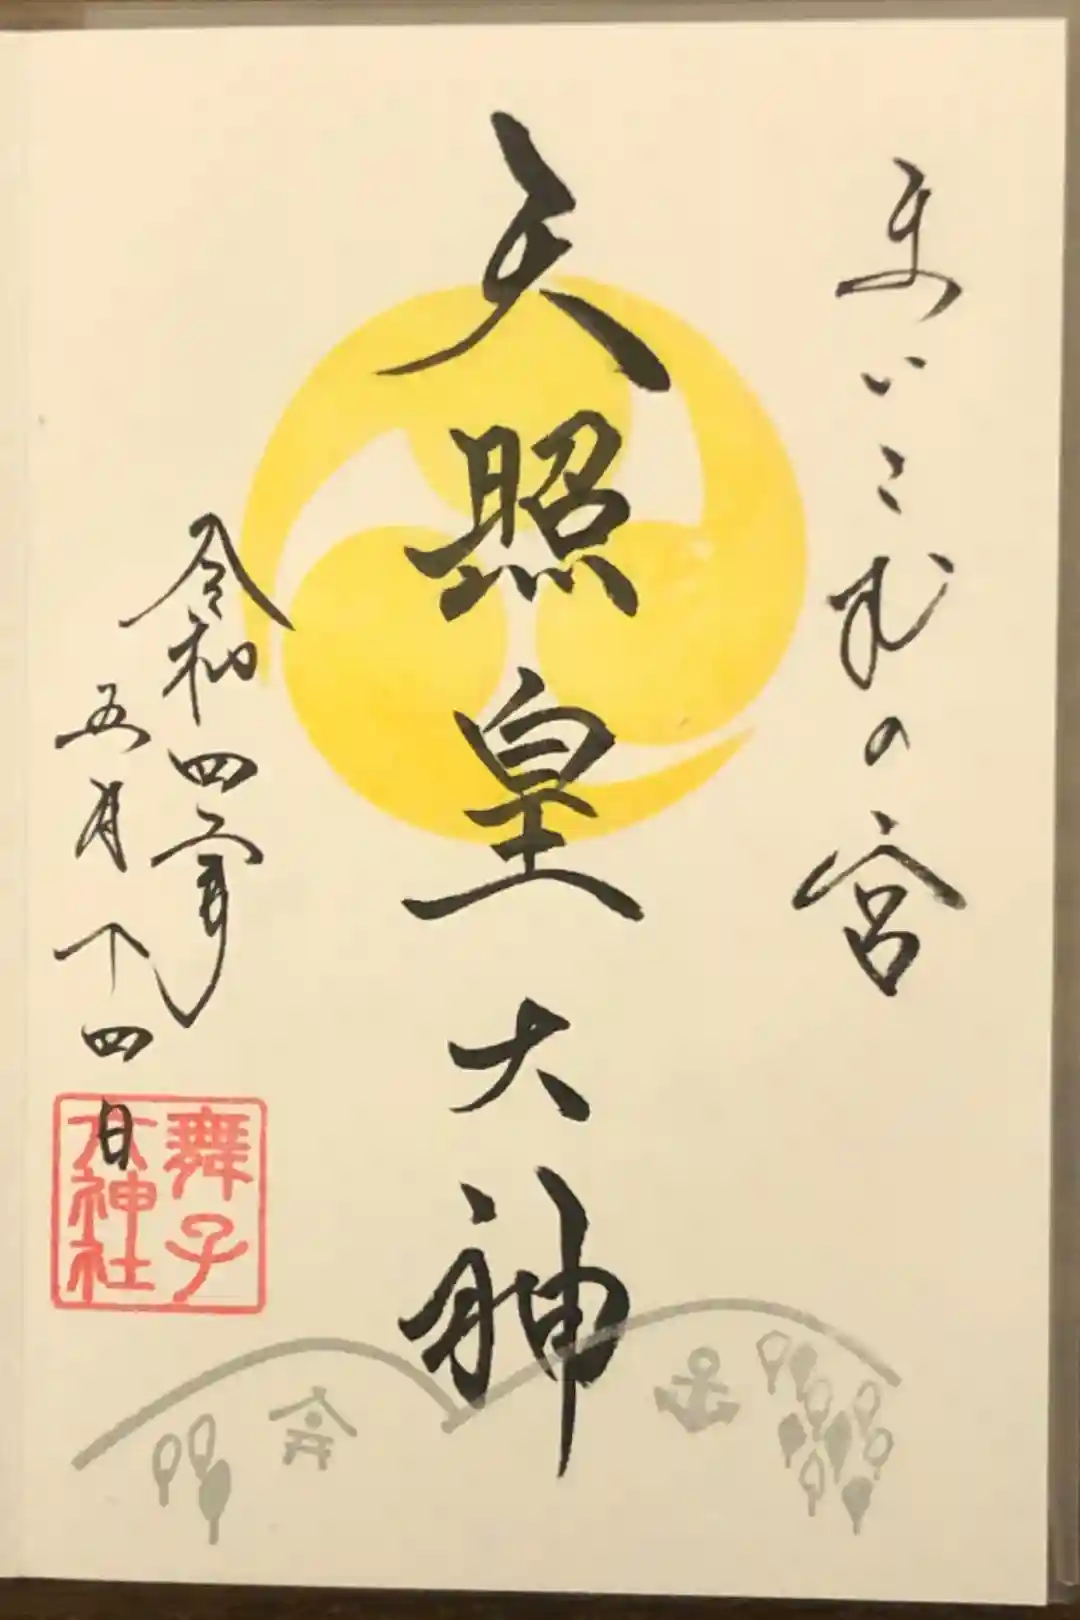 まいこ の宮
天照皇大神
令和四年
五月十四日
舞子
六神社